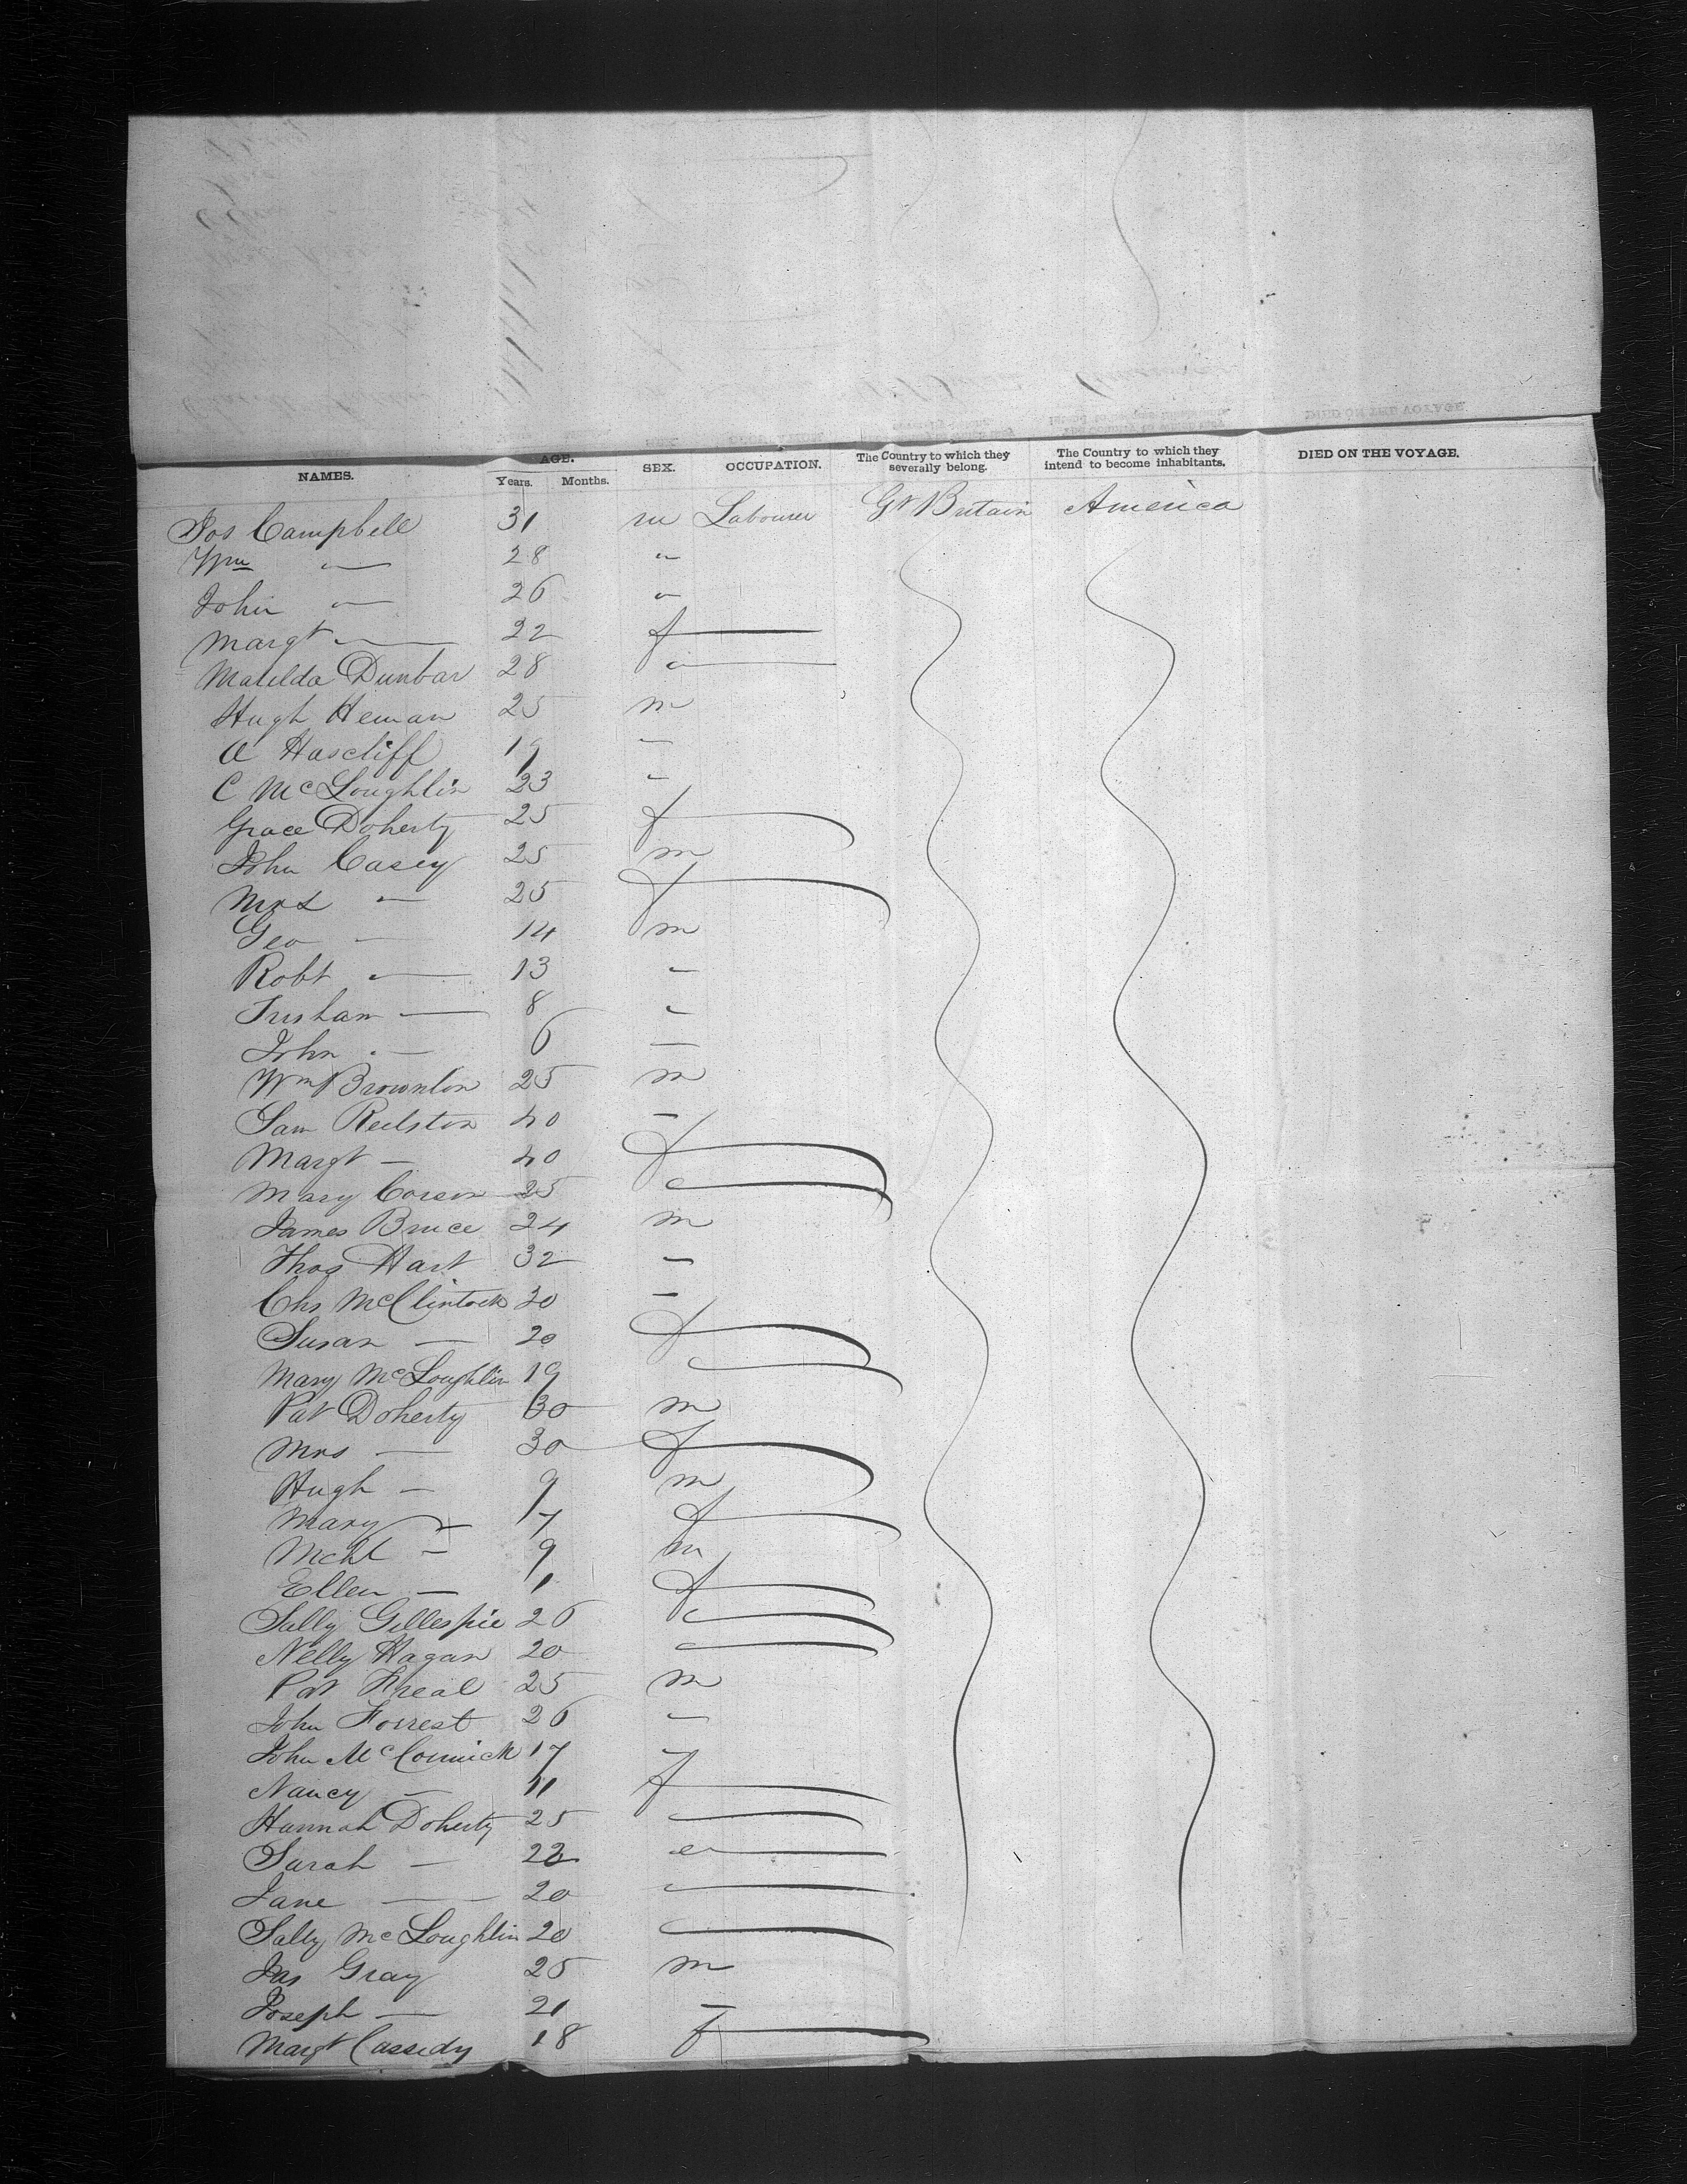 NAMES. AGE. Years. Months. SEX. OCCUPATION. The Country to which they severally belong. The Country to which they intend to become inhabitants. DIED ON THE VOYAGE.
Jos Campbell 31 m Labourer Gt Britain America
Wm " 28 "
John " 26 "
Margt " 22 f
Matilda Dunbar 28 "
Hugh Heman 25 m
A Hascliff 19 "
C McLoughlin 23 "
Grace Doherty 25 f
John Casey 25 m
Mrs " 25 f
Geo — 14 m
Robt " 13 "
8 "
John " 6 —
Wm Brownlow 25 m
Sam 40 —
Margt — 40 f
Mary Corson 25 "
James Bruce 24 m
Thos Hart 32 —
Chs McClintock 20 —
Susan — 20 f
Mary McLoughlin 19 "
Pat Doherty 30 m
Mrs — 30 f
Hugh — 9 m
Mary — 17 f
Mchl — 9 m
Ellen — 1 f
Sally Gillespie 26 "
Nelly Hagan 20 "
Pat Freal 25 m
John Forrest 26 —
John McCormick 17 —
Nancy — 11 f
Hannah Doherty 25 "
Sarah — 22 "
Jane — 20 "
Sally McLoughlin 20 "
Jas Gray 25 m
Joseph — 21 —
Margt Cassidy 18 f